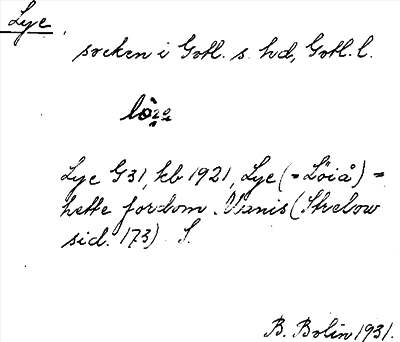 Lye
socken i Gotl. s. hd, Gotl. l.
Lye G31, kb 1921, Lye (= Löiå) =
hette fordom Vanis (Strelow
sid. 173) S.
B. Bolin 1931.